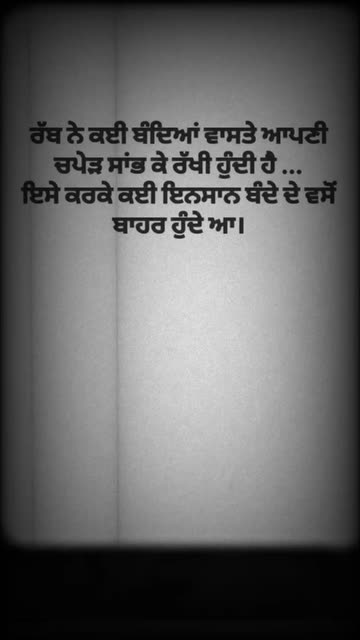 ਰੱਬ ਨੇ ਕਈ ਬੰਦਿਆਂ ਵਾਸਤੇ ਆਪਣੀ
ਚਪੇੜ ਸਾਂਭ ਕੇ ਰੱਖੀ ਹੁੰਦੀ ਹੈ ...
ਇਸੇ ਕਰਕੇ ਕਈ ਇਨਸਾਨ ਬੰਦੇ ਦੇ ਵਸੋਂ
ਬਾਹਰ ਹੁੰਦੇ ਆ।